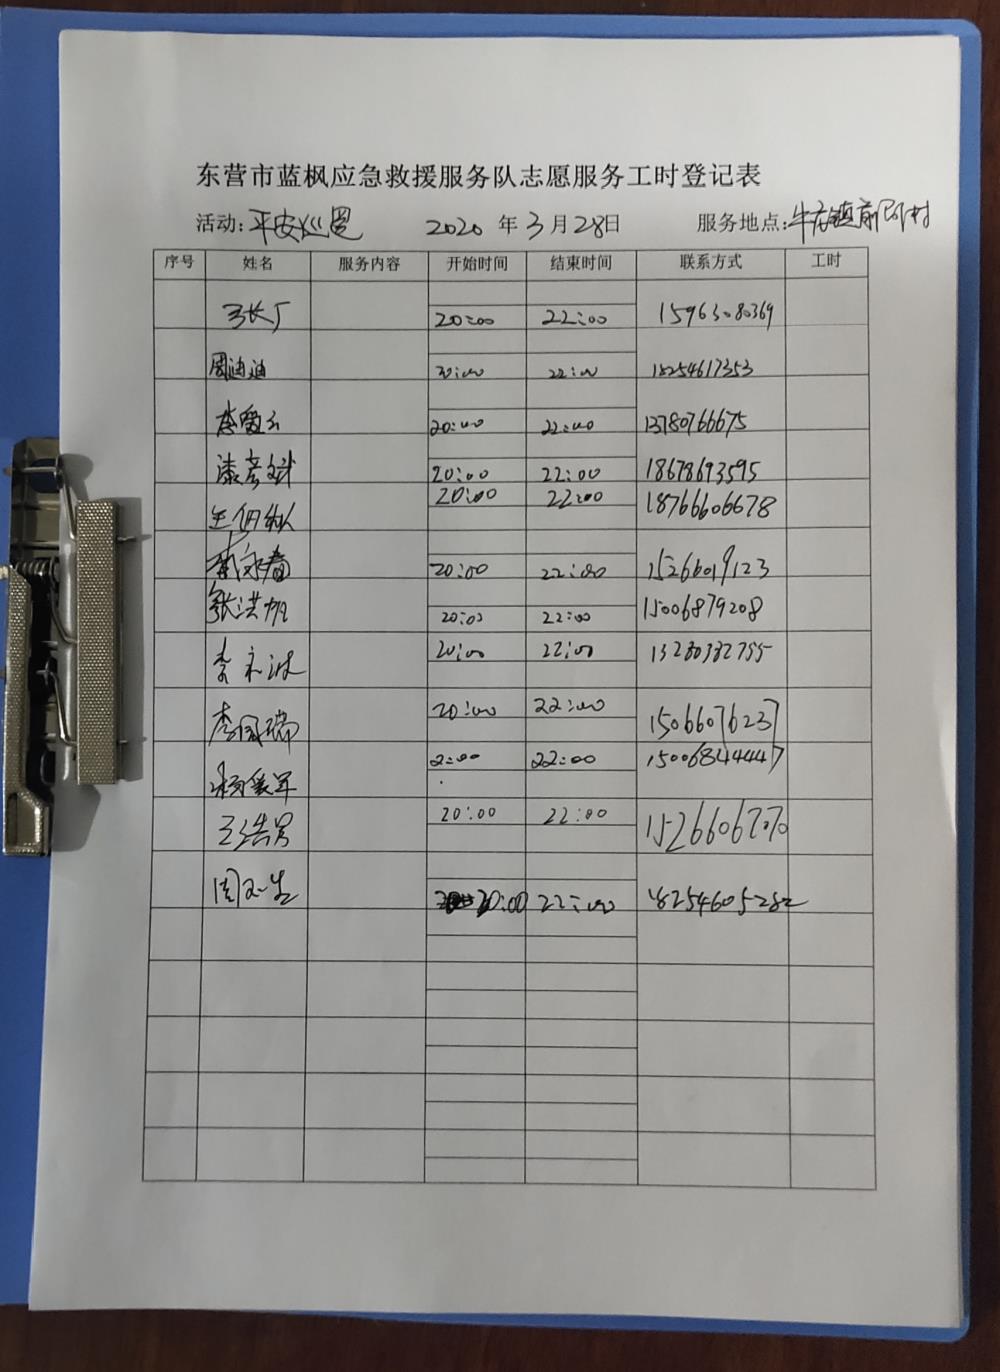 东营市蓝枫应急救援服务队志愿服务工时登记表
活动: 平安巡逻 2020 年 3 月 28 日 服务地点: 牛庄镇前 村
序号 姓名 服务内容 开始时间 结束时间 联系方式 工时
20:00 22:00 15963080369
周迪迪 20:00 22:00 18254617353
20:00 22:00 13780766675
20:00 22:00 18678693595
20:00 22:00 18766606678
20:00 22:00 15266019123
张洪 20:00 22:00 15006879208
李 波 20:00 22:00
李风瑞 20:00 22:00 15066076237
杨爱军 2:00 22:00 15006844447
20:00 22:00
周 20:00 22:00 18254605282